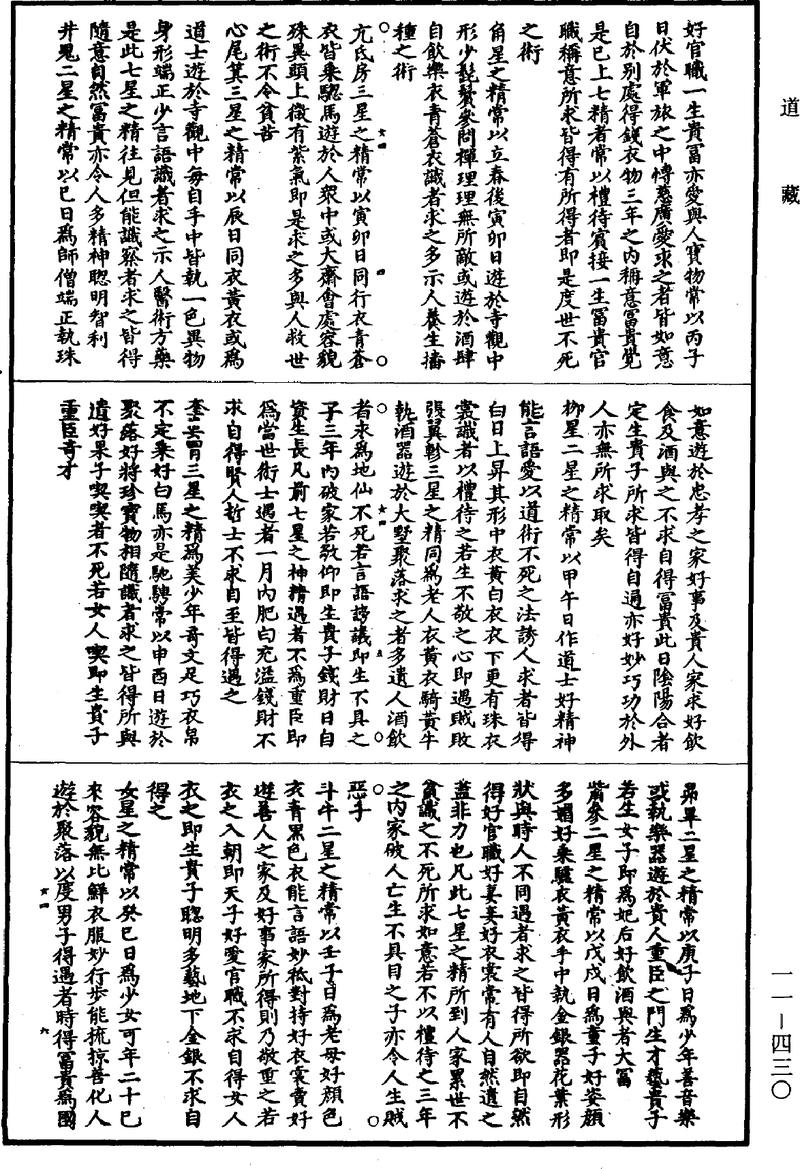 道藏
一一－四三〇
好官職一生貴冨亦愛與人寶物常以丙子
日伏於軍旅之中慱慈廣愛求之者皆如意
自於别處得錢衣物三年之内稱意冨貴覺
是巳上七精者常以禮待賔接一生冨貴官
職稱意所求皆得有所得者即是度世不死
之術
角星之精常以立春後寅卯日遊於寺觀中
形少髭鬢叅問禪理理無所敵或遊於酒肆
自飲樂衣青蒼衣識者求之多示人養生播
種之術
亢氐房三星之精常以寅卯日同行衣青蒼
衣皆乗驄馬遊於人衆中或大齋會處容貌
殊異頭上微有紫氣即是求之多與人救世
之術不令貧苦
心尾箕三星之精常以辰日同衣黃衣或爲
道士遊於寺觀中每自手中皆執一色異物
身形端正少言語識者求之示人醫術方藥
是此七星之精往見但能識察者求之皆得
隨意自然冨貴亦令人多精神聦明智利
井鬼二星之精常以巳日爲師僧端正執珠
如意遊於忠孝之家好事及貴人家求好飲
食及酒與之不求自得冨貴此日隂陽合者
定生貴子所求皆得自通亦好妙巧功於外
人亦無所求取矣
栁星二星之精常以甲午日作道士好精神
能言語愛以道術不死之法誘人求者皆得
白日上昇其形中衣黃白衣衣下更有珠衣
裳識者以禮待之若生不敬之心即遇賊敗
張翼軫三星之精同爲老人衣黃衣騎黃牛
執酒器遊於大墅聚落求之者多遺人酒飲
者求爲地仙不死若言語謗議即生不具之
子三年内破家若敬仰即生貴子錢財日自
資生長凡前七星之神精遇者不爲重臣即
爲當世術士遇者一月内肥白充溢錢財不
求自得賢人哲士不求自至皆得遇之
奎婁胃三星之精爲美少年奇文足巧衣帛
不定乗好白馬亦是馳騁常以申酉日遊於
聚落好將珍寶物相隨識者求之皆得所與
遺好果子喫喫者不死若女人喫即生貴子
重臣奇才
昴畢二星之精常以庚子日爲少年善音樂
或執樂器遊於貴人重臣之門生才藝貴子
若生女子即爲妃后好飲酒與者大冨
觜參二星之精常以戊戌日爲童子好姿顔
多媚好乗驢衣黃衣手中執金銀器花葉形
狀與時人不同遇者求之皆得所欲即自然
得好官職好妻美好衣裳常有人自然遺之
盖非力也凡此七星之精所到人家累世不
貧識之不死所求如意若不以禮待之三年
之内家破人亡生不具目之子亦令人生賊
惡子
斗牛二星之精常以壬子日爲老母好顔色
衣青黑色衣能言語妙秪對持好衣裳賣好
遊善人之家及好事家所得則乃敬重之若
衣之入朝即天子好愛官職不求自得女人
衣之即生貴子聦明多藝地下金銀不求自
得之
女星之精常以癸巳日爲少女可年二十巳
來容貌無比鮮衣服妙行步能梳掠善化人
遊於聚落以度男子得遇者時得冨貴爲國